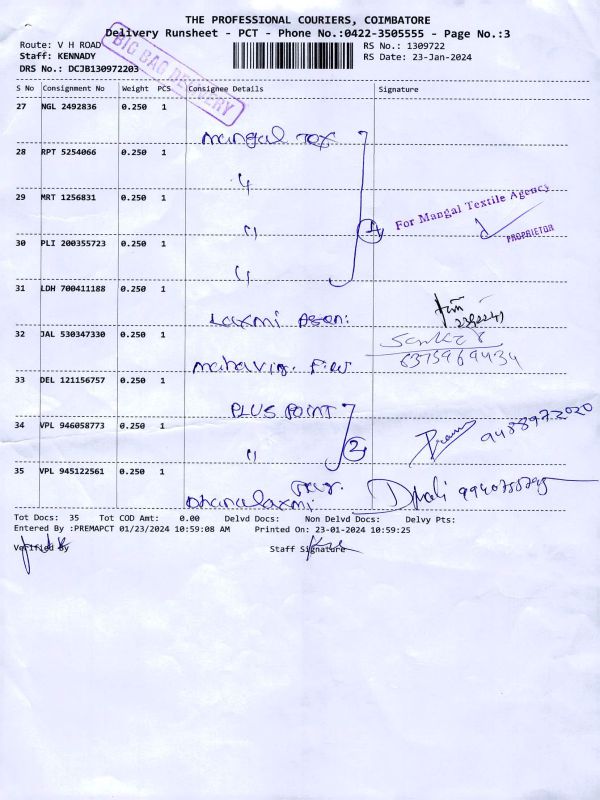 THE PROFESSIONAL COURIERS, COIMBATORE
Delivery Runsheet - PCT - Phone No.:0422-3505555 - Page No.:3
Route: V H ROAD
RS No.: 1309722
Staff: KENNADY
RS Date: 23-Jan-2024
DRS No.: DCJB130972203
BIG BAG DELIVERY
S No Consignment No Weight PCS Consignee Details Signature
27 NGL 2492836 0.250 1
Mangal Tex
28 RPT 5254066 0.250 1
"
29 MRT 1256831 0.250 1
"
4
For Mangal Textile Agency
PROPRIETOR
30 PLI 200355723 0.250 1
"
31 LDH 700411188 0.250 1
Laxmi Agen:
32 JAL 530347330 0.250 1
Mahavir.
33 DEL 121156757 0.250 1
PLUS POINT
34 VPL 946058773 0.250 1
"
2
Prem
9488972020
35 VPL 945122561 0.250 1
Dhanalaxmi
Tot Docs: 35 Tot COD Amt: 0.00 Delvd Docs: Non Delvd Docs: Delvy Pts:
Entered By :PREMAPCT 01/23/2024 10:59:08 AM Printed On: 23-01-2024 10:59:25
Verified By
Staff Signature